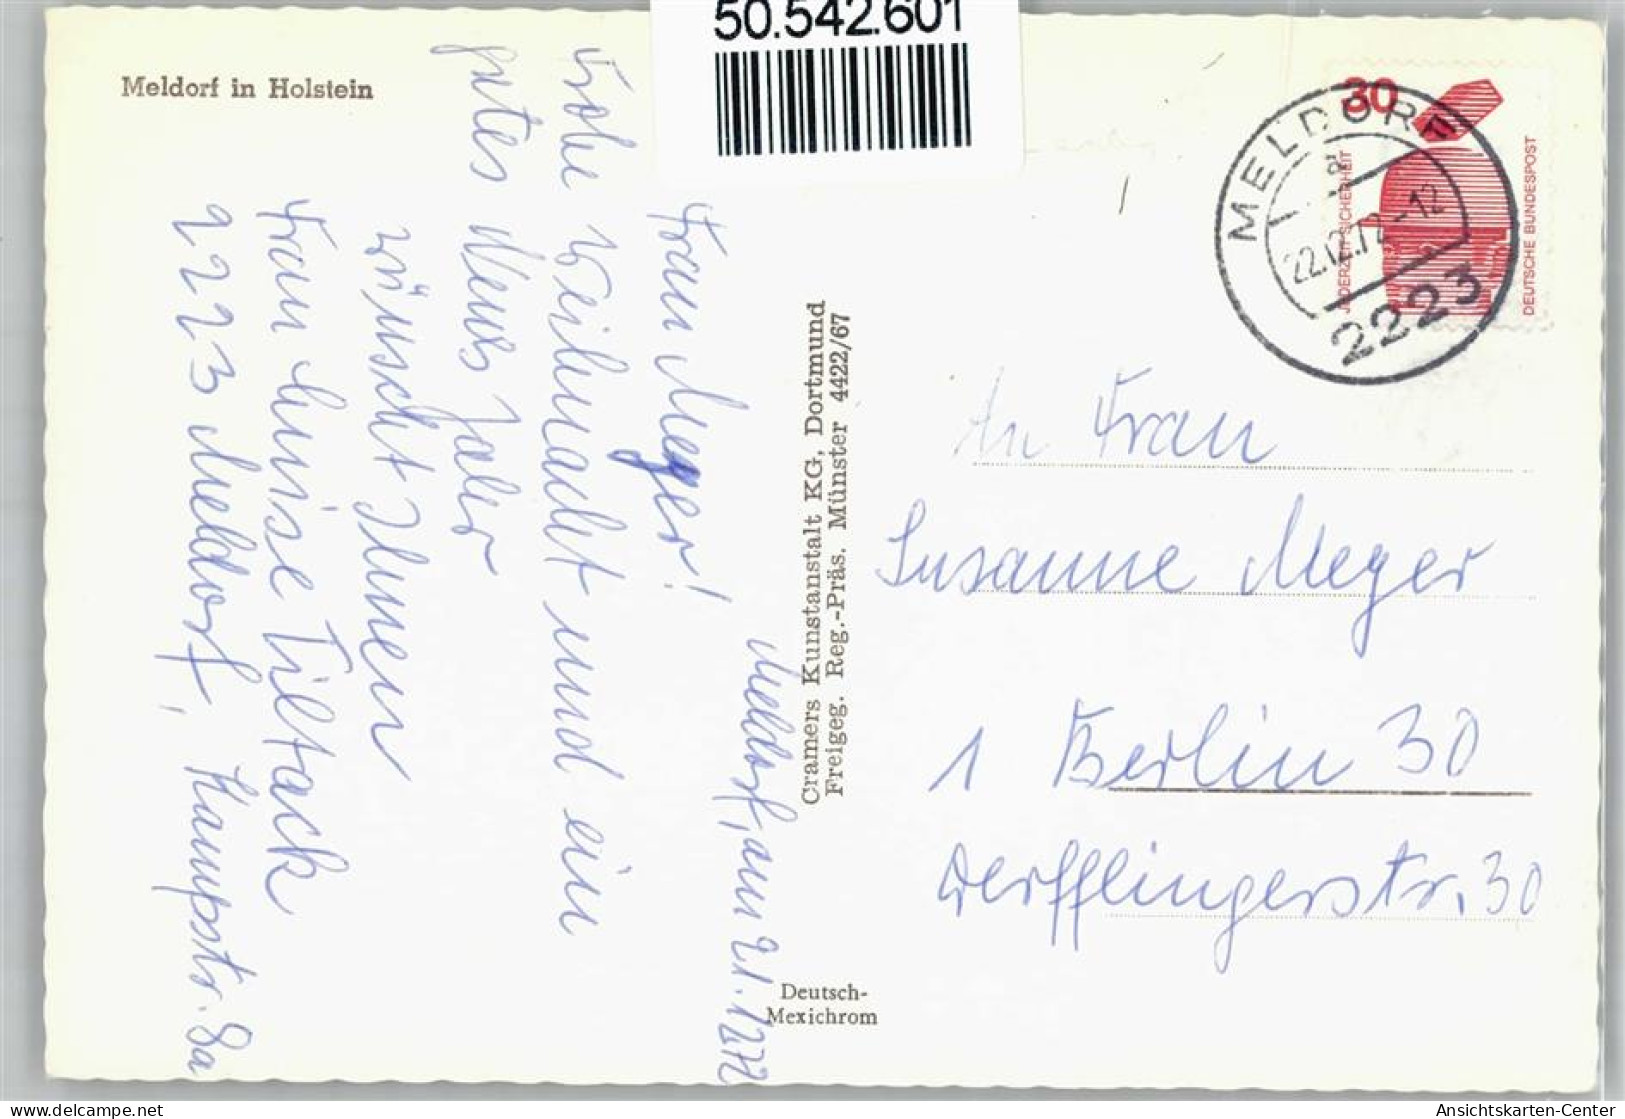 50.542.601
Meldorf in Holstein
Meldorf, am 21.1272
Frau Meyer!
Frohe Weihnacht und ein
gutes Neues Jahr
wünscht Ihnen
Frau Luise Tiltack
2223 Meldorf, Kampstr. 8a
Cramers Kunstanstalt KG, Dortmund
Freigeg. Reg.-Präs. Münster 4422/67
Deutsch-
Mexichrom
30
JEDERZEIT SICHERHEIT
DEUTSCHE BUNDESPOST
MELDORF
a
22.12.72-12
2223
An Frau
Susanne Meyer
1 Berlin 30
Derfflingerstr. 30
delcampe.net
Ansichtskarten-Center